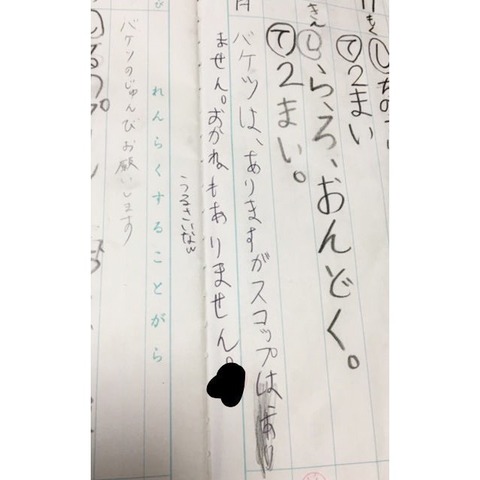 もく
て2まい
きん
し、ら、ろ、おんどく。
て2まい。
月
バケツは、ありますがスコップはあり
ません。おかねもありません。
うるさいなw
れんらくすることがら
バケツのじゅんびお願いします